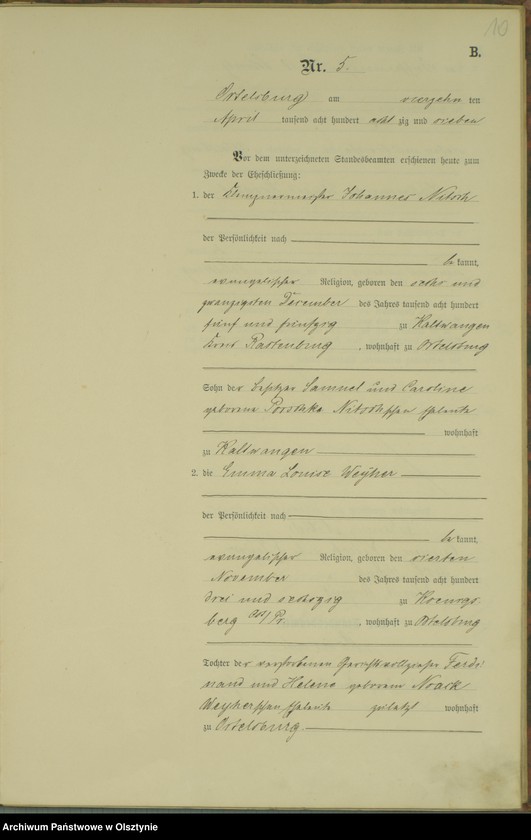 10
B.
Nr. 5.
Ortelsburg am vierzehn ten
April tausend acht hundert acht zig und sieben
Vor dem unterzeichneten Standesbeamten erschienen heute zum
Zwecke der Eheschließung:
1. der Klempnermeister Johannes Nitsch
der Persönlichkeit nach
be kannt,
evangelischer Religion, geboren den acht und
zwanzigsten Dezember des Jahres tausend acht hundert
fünf und fünfzig zu Kaltwangen
Kreis Rastenburg, wohnhaft zu Ortelsburg
Sohn der Besitzer Samuel und Caroline
geborene Nitsch'schen Eheleute
wohnhaft
zu Kaltwangen
2. die Emma Louise Weyher
der Persönlichkeit nach
be kannt,
evangelischer Religion, geboren den vierten
November des Jahres tausend acht hundert
drei und sechszig zu Koenigs
berg Ost/Pr., wohnhaft zu Ortelsburg
Tochter der verstorbenen Gerichtsvollzieher Ferdi
nand und Helene geborene Noack
Weyherschen Eheleute zuletzt wohnhaft
zu Ortelsburg
Archiwum Państwowe w Olsztynie